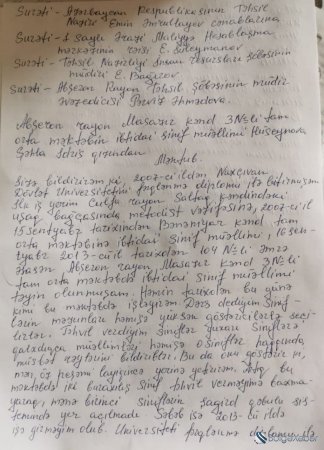 Surəti - Azərbaycan Respublikasının Təhsil
Naziri Emin Əmrullayev cənablarına
Surəti - 1 saylı Ərazi Maliyyə Hesablaşma
mərkəzinin rəisi E. Süleymanov
Surəti - Təhsil Nazirliyi İnsan resursları şöbəsinin
müdiri E. Bağırov
Surəti - Abşeron Rayon Təhsil Şöbəsinin müdir
əvəzedicisi Pərviz Əhmədova.
Abşeron rayon Masazır kənd 3 №li tam
orta məktəbin ibtidai sinif müəllimi Hüseynova
İdris qızından
Məktub.
Sizə bildirirəm ki, 2007-ci ildən Naxçıvan
Dövlət Universitetini fərqlənmə diplomu ilə bitirmişəm
İlk iş yerim Culfa rayon Saltaq kəndindəki
uşaq bağçasında metodist vəzifəsinə, 2007-ci il
15 sentyabr tarixindən Bənəniyar kənd tam
orta məktəbinə ibtidai sinif müəllimi, 16 sen-
tyabr 2013-cü il tarixdən 104 №li əmrə
əsasən Abşeron rayon Masazır kənd 3 №li
tam orta məktəbdə ibtidai sinif müəllimi
təyin olunmuşam. Həmin tarixdən bu günə
kimi bu məktəbdə işləyirəm. Dərs dediyim sinif-
lərin məzunları həmişə yüksək göstəricilərlə seçi-
lirlər. Təhvil verdiyim siniflər yuxarı siniflərə
qalxdıqca müəllimləri həmişə o siniflər haqqında
müsbət rəylərini bildiriblər. Bu da onu göstərir ki,
mən, öz peşəmi layiqincə yerinə yetirirəm. Artıq, bu
məktəbdə iki buraxılış sinif təhvil verməyimə baxma-
yaraq, mənə birinci siniflərin şagird qəbulu sis-
temində yer açılmadı. Səbəb isə 2013-cü ildə
işə girməyim olub. Universiteti fərqlənmə diplomu ilə